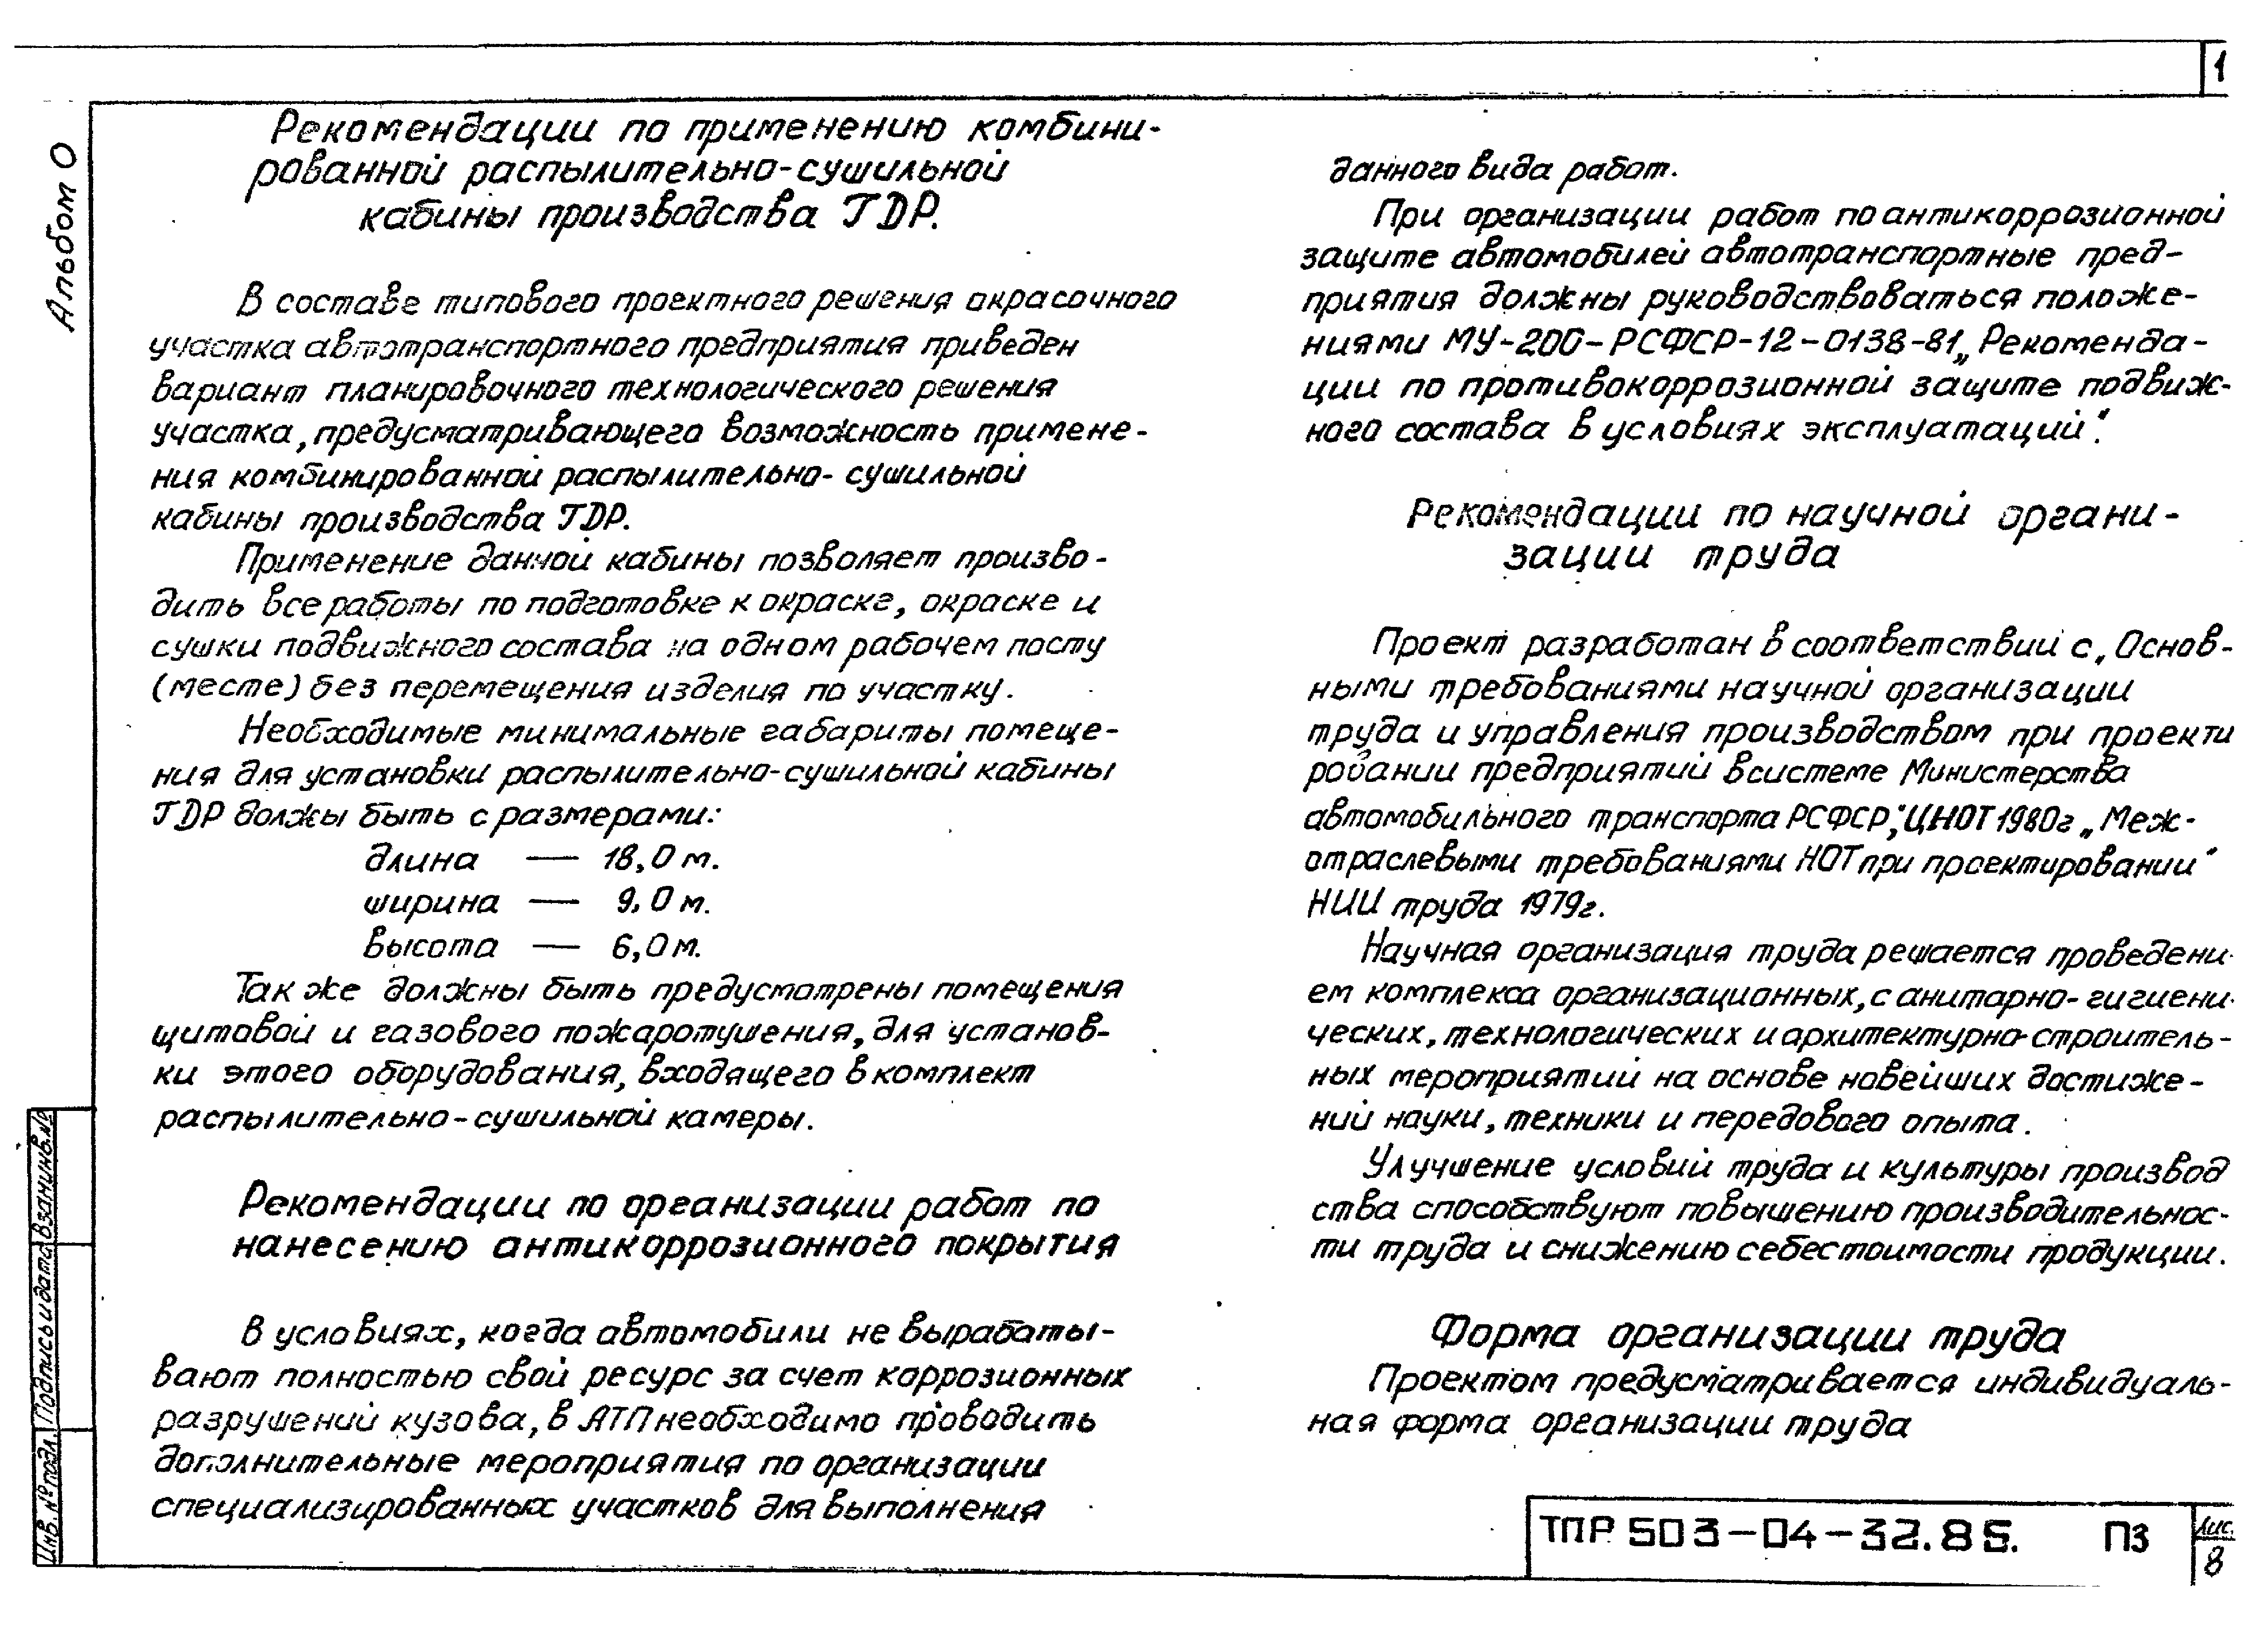 1
Альбом 0
Рекомендации по применению комбини-
рованной распылительно-сушильной
кабины производства ГДР.
В составе типового проектного решения окрасочного
участка автотранспортного предприятия приведен
вариант планировочного технологического решения
участка, предусматривающего возможность примене-
ния комбинированной распылительно-сушильной
кабины производства ГДР.
Применение данной кабины позволяет произво-
дить все работы по подготовке к окраске, окраске и
сушки подвижного состава на одном рабочем посту
(месте) без перемещения изделия по участку.
Необходимые минимальные габариты помеще-
ния для установки распылительно-сушильной кабины
ГДР должы быть с размерами:
длина — 18,0 м.
ширина — 9,0 м.
высота — 6,0 м.
Так же должны быть предусмотрены помещения
щитовой и газового пожаротушения, для установ-
ки этого оборудования, входящего в комплект
распылительно-сушильной камеры.
Рекомендации по организации работ по
нанесению антикоррозионного покрытия
В условиях, когда автомобили не вырабаты-
вают полностью свой ресурс за счет коррозионных
разрушений кузова, в АТП необходимо проводить
дополнительные мероприятия по организации
специализированных участков для выполнения
данного вида работ.
При организации работ по антикоррозионной
защите автомобилей автотранспортные пред-
приятия должны руководствоваться положе-
ниями МУ-200-РСФСР-12-0138-81 „Рекоменда-
ции по противокоррозионной защите подвиж-
ного состава в условиях эксплуатаций".
Рекомендации по научной органи-
зации труда
Проект разработан в соответствии с „Основ-
ными требованиями научной организации
труда и управления производством при проекти
ровании предприятий в системе Министерства
автомобильного транспорта РСФСР", ЦНОТ 1980г „Меж-
отраслевыми требованиями НОТ при проектировании"
НИИ труда 1979г.
Научная организация труда решается проведени-
ем комплекса организационных, санитарно-гигиени-
ческих, технологических и архитектурно-строитель-
ных мероприятий на основе новейших достиже-
ний науки, техники и передового опыта.
Улучшение условий труда и культуры производ
ства способствуют повышению производительнос-
ти труда и снижению себестоимости продукции.
Форма организации труда
Проектом предусматривается индивидуаль-
ная форма организации труда
Инв. № подл. Подпись и дата Взам инв. №
ТПР 503-04-32.85. ПЗ
Лис.
8